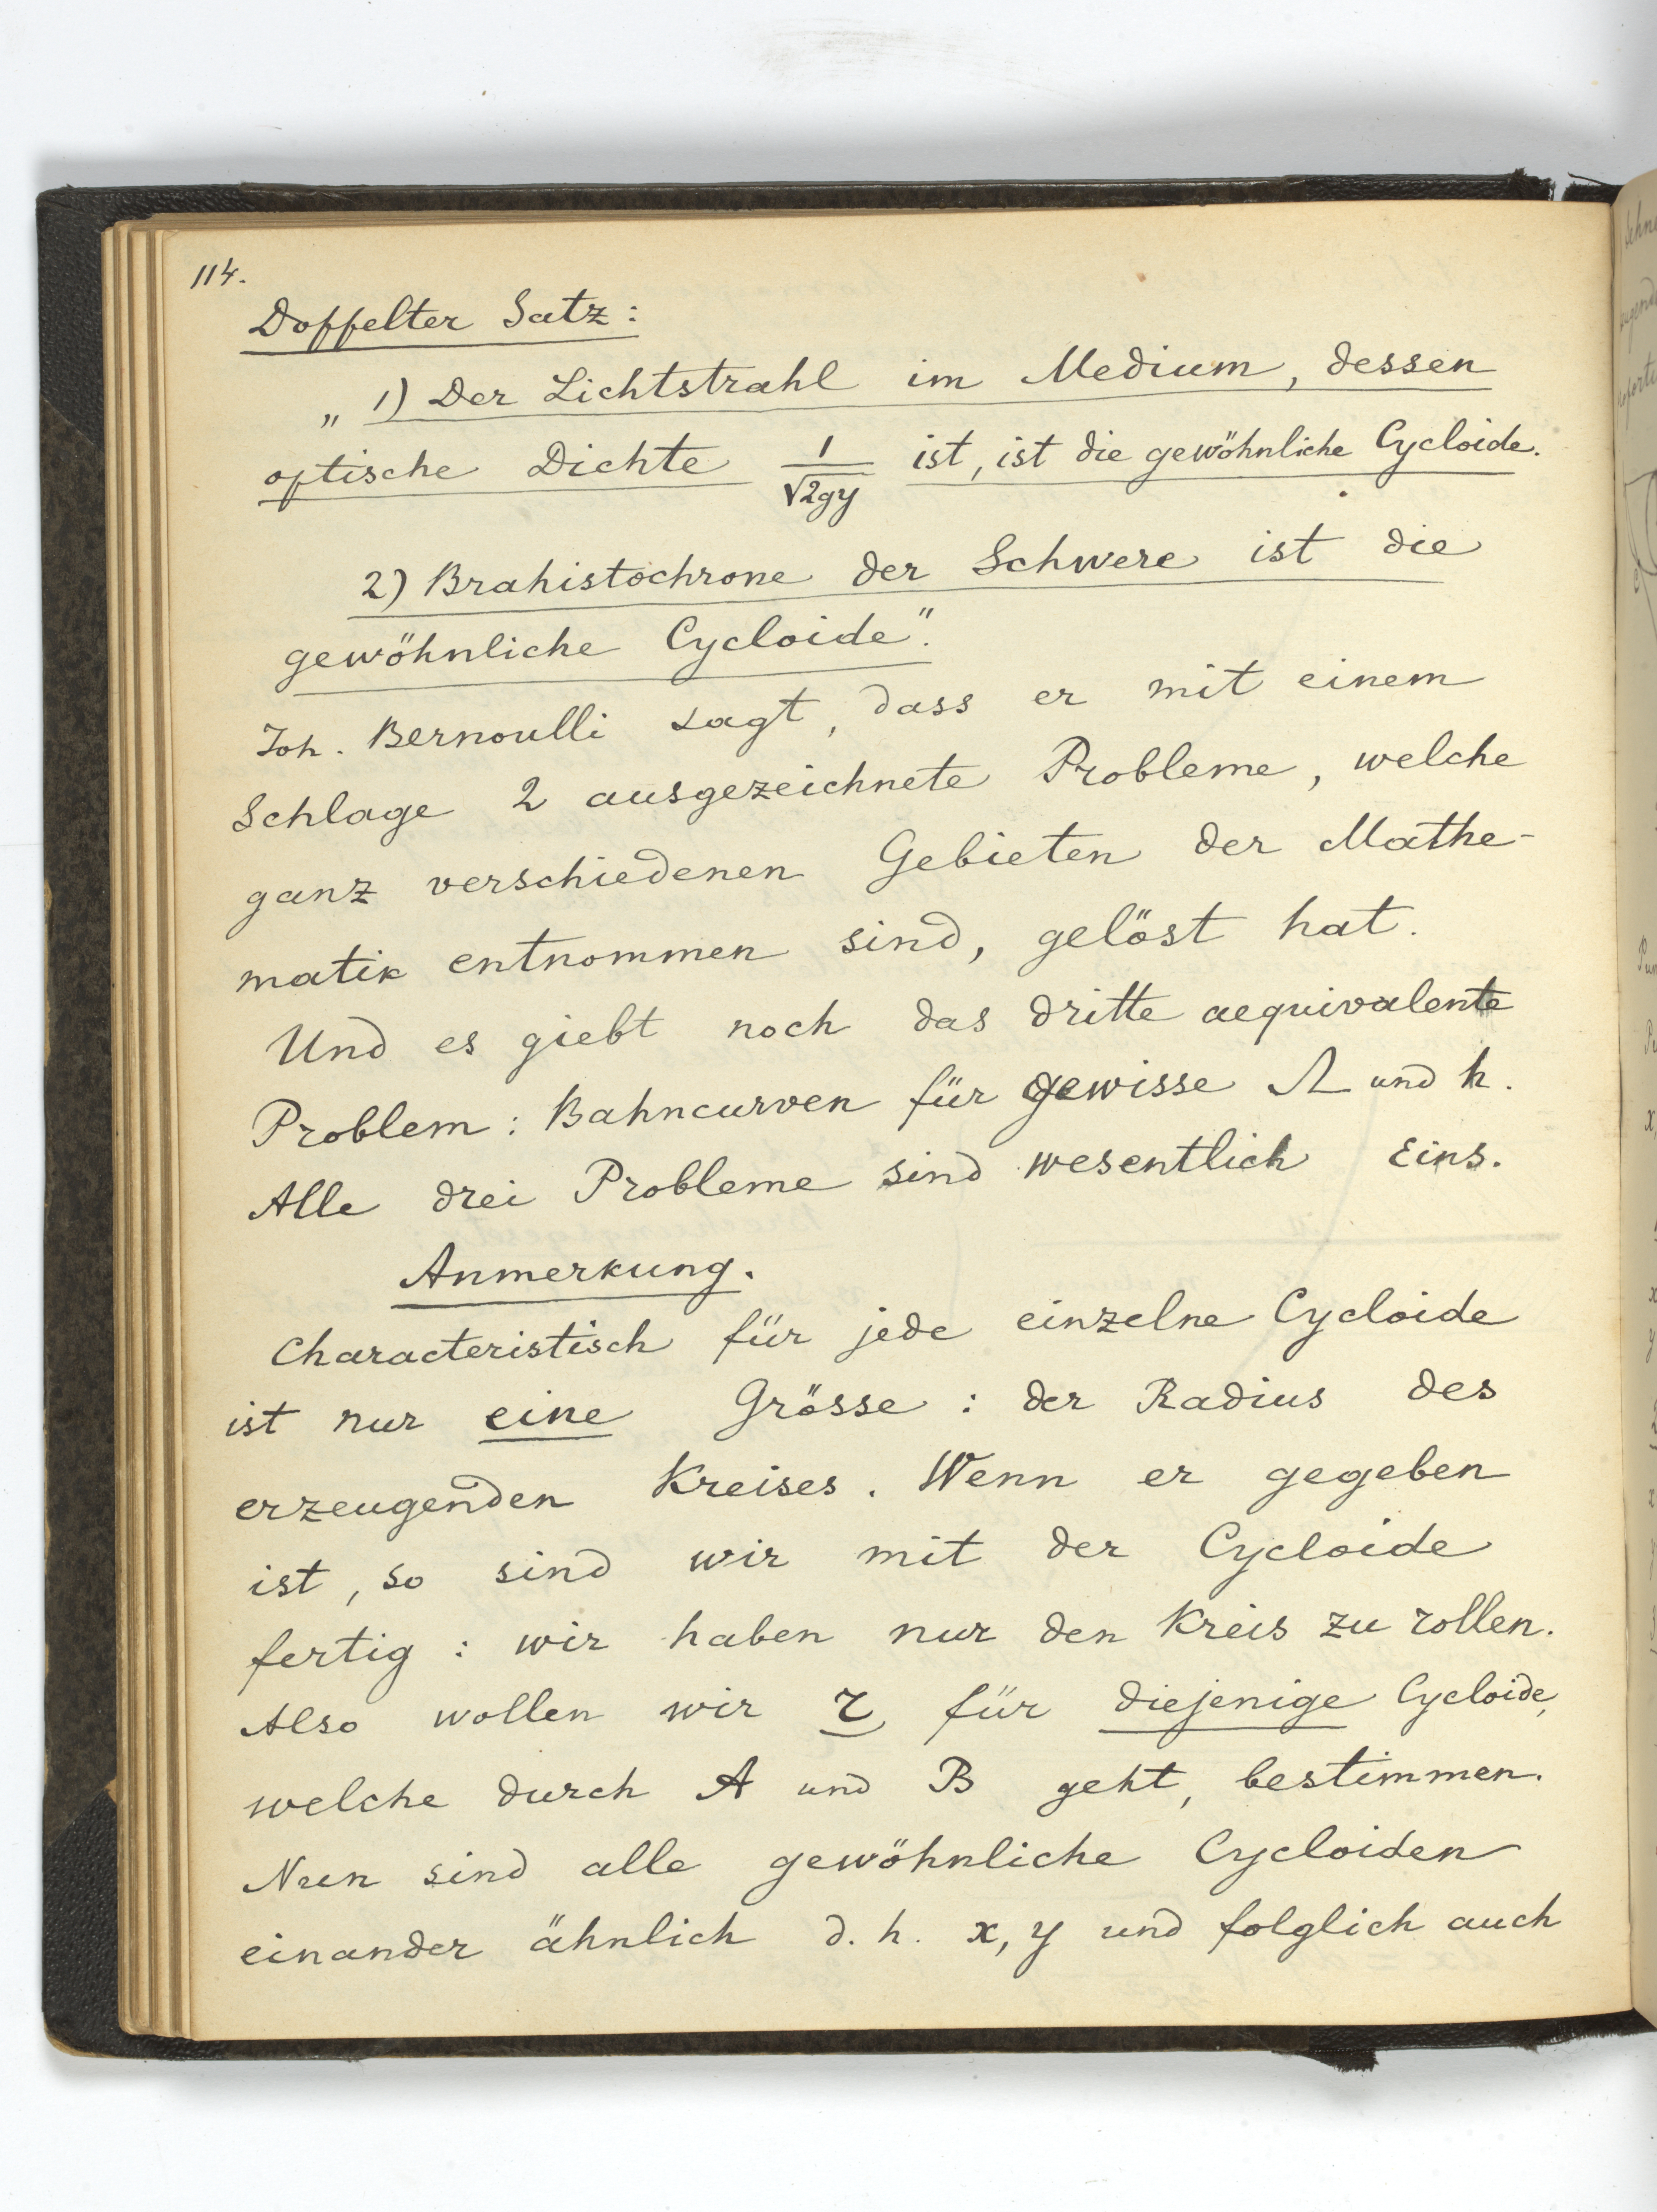 114.
Doppelter Satz:
„ 1) Der Lichtstrahl im Medium, dessen
optische Dichte 1/√2gy ist, ist die gewöhnliche Cycloide.
2) Brahistochrone der Schwere ist die
gewöhnliche Cycloide".
Joh. Bernoulli sagt, dass er mit einem
Schlage 2 ausgezeichnete Probleme, welche
ganz verschiedenen Gebieten der Mathe-
matik entnommen sind, gelöst hat.
Und es giebt noch das dritte aequivalente
Problem: Bahncurven für gewisse Ω und h.
Alle drei Probleme sind wesentlich Eins.
Anmerkung.
Characteristisch für jede einzelne Cycloide
ist nur eine Grösse: der Radius des
erzeugenden Kreises. Wenn er gegeben
ist, so sind wir mit der Cycloide
fertig: wir haben nur den Kreis zu rollen.
Also wollen wir r für diejenige Cycloide,
welche durch A und B geht, bestimmen.
Nun sind alle gewöhnliche Cycloiden
einander ähnlich d. h. x, y und folglich auch